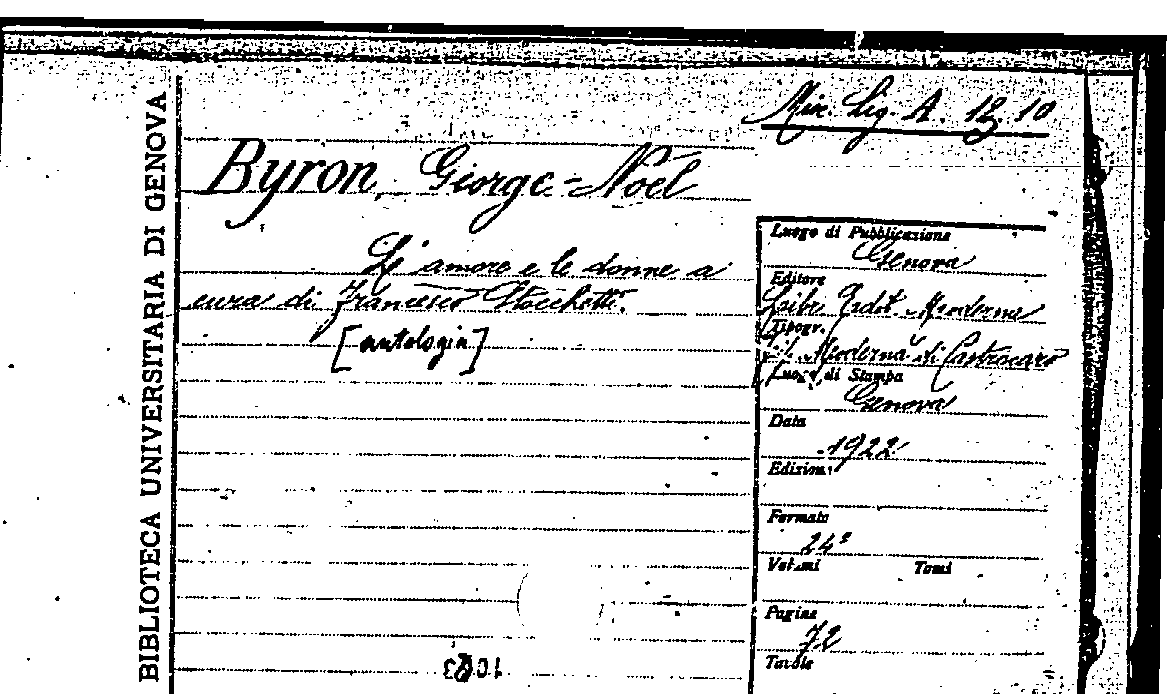 BIBLIOTECA UNIVERSITARIA DI GENOVA
Mis. Lig. A. 13. 10
Byron, Giorge-Noël
L' amore e le donne a
cura di Francesco Stocchetti.
[antologia]
Luogo di Pubblicazione
Genova
Editore
Libr. Edit. Moderna
Tipogr.
Moderna di Castrocaro
Luogo di Stampa
Genova
Data
1922
Edizioni
Formato
24°
Volumi Tomi
Pagine
72
Tavole